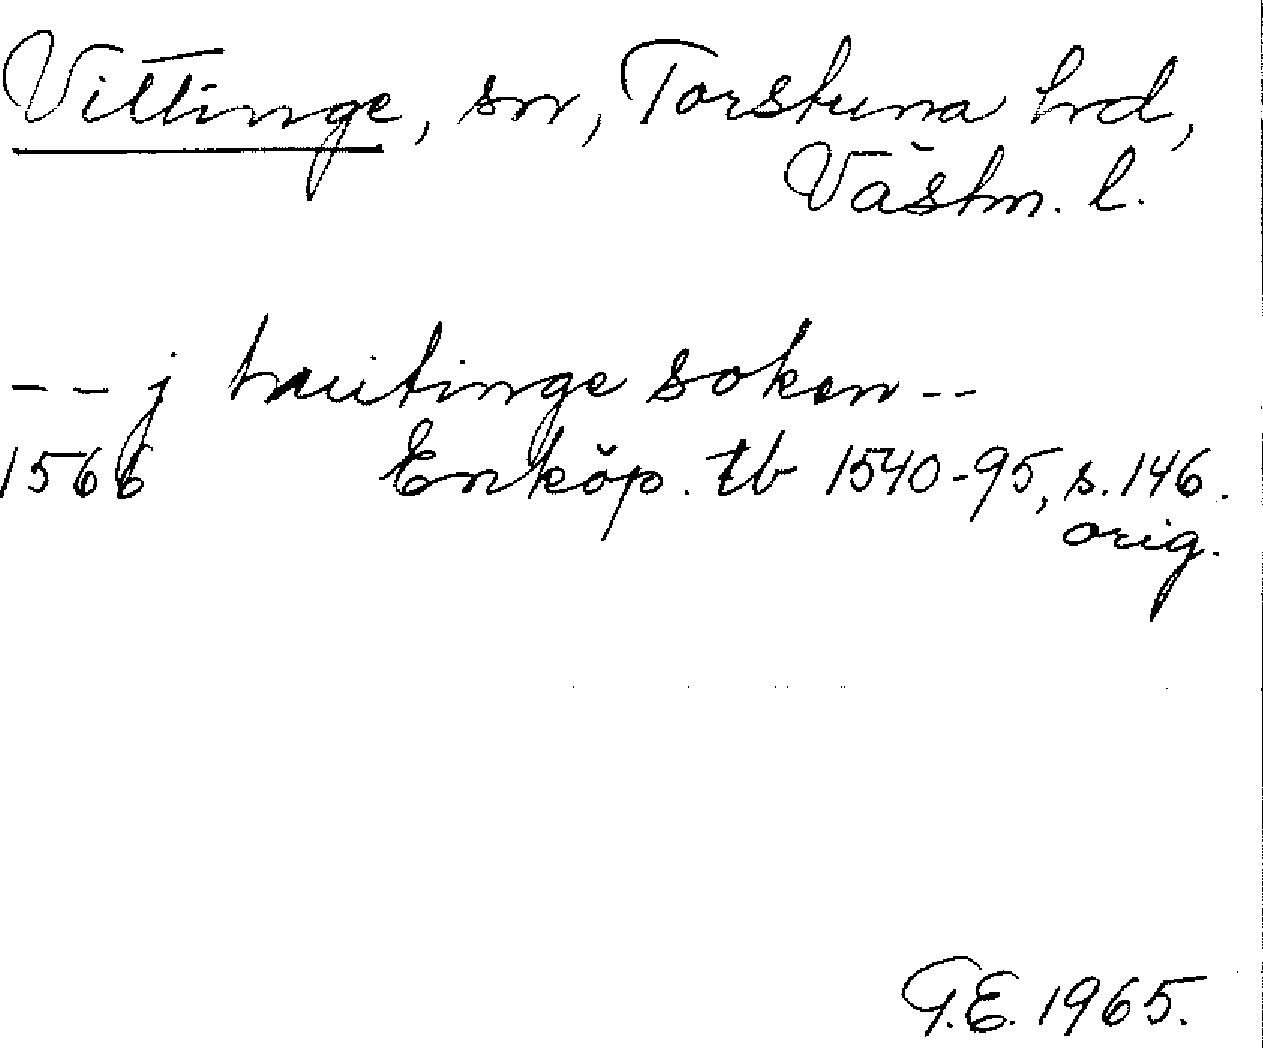 Vittinge, sn, Torstuna hd,
Västm. l.
-- j huitinge soken --
1566 Enköp. tb 1540-95, s. 146.
orig.
G.E. 1965.